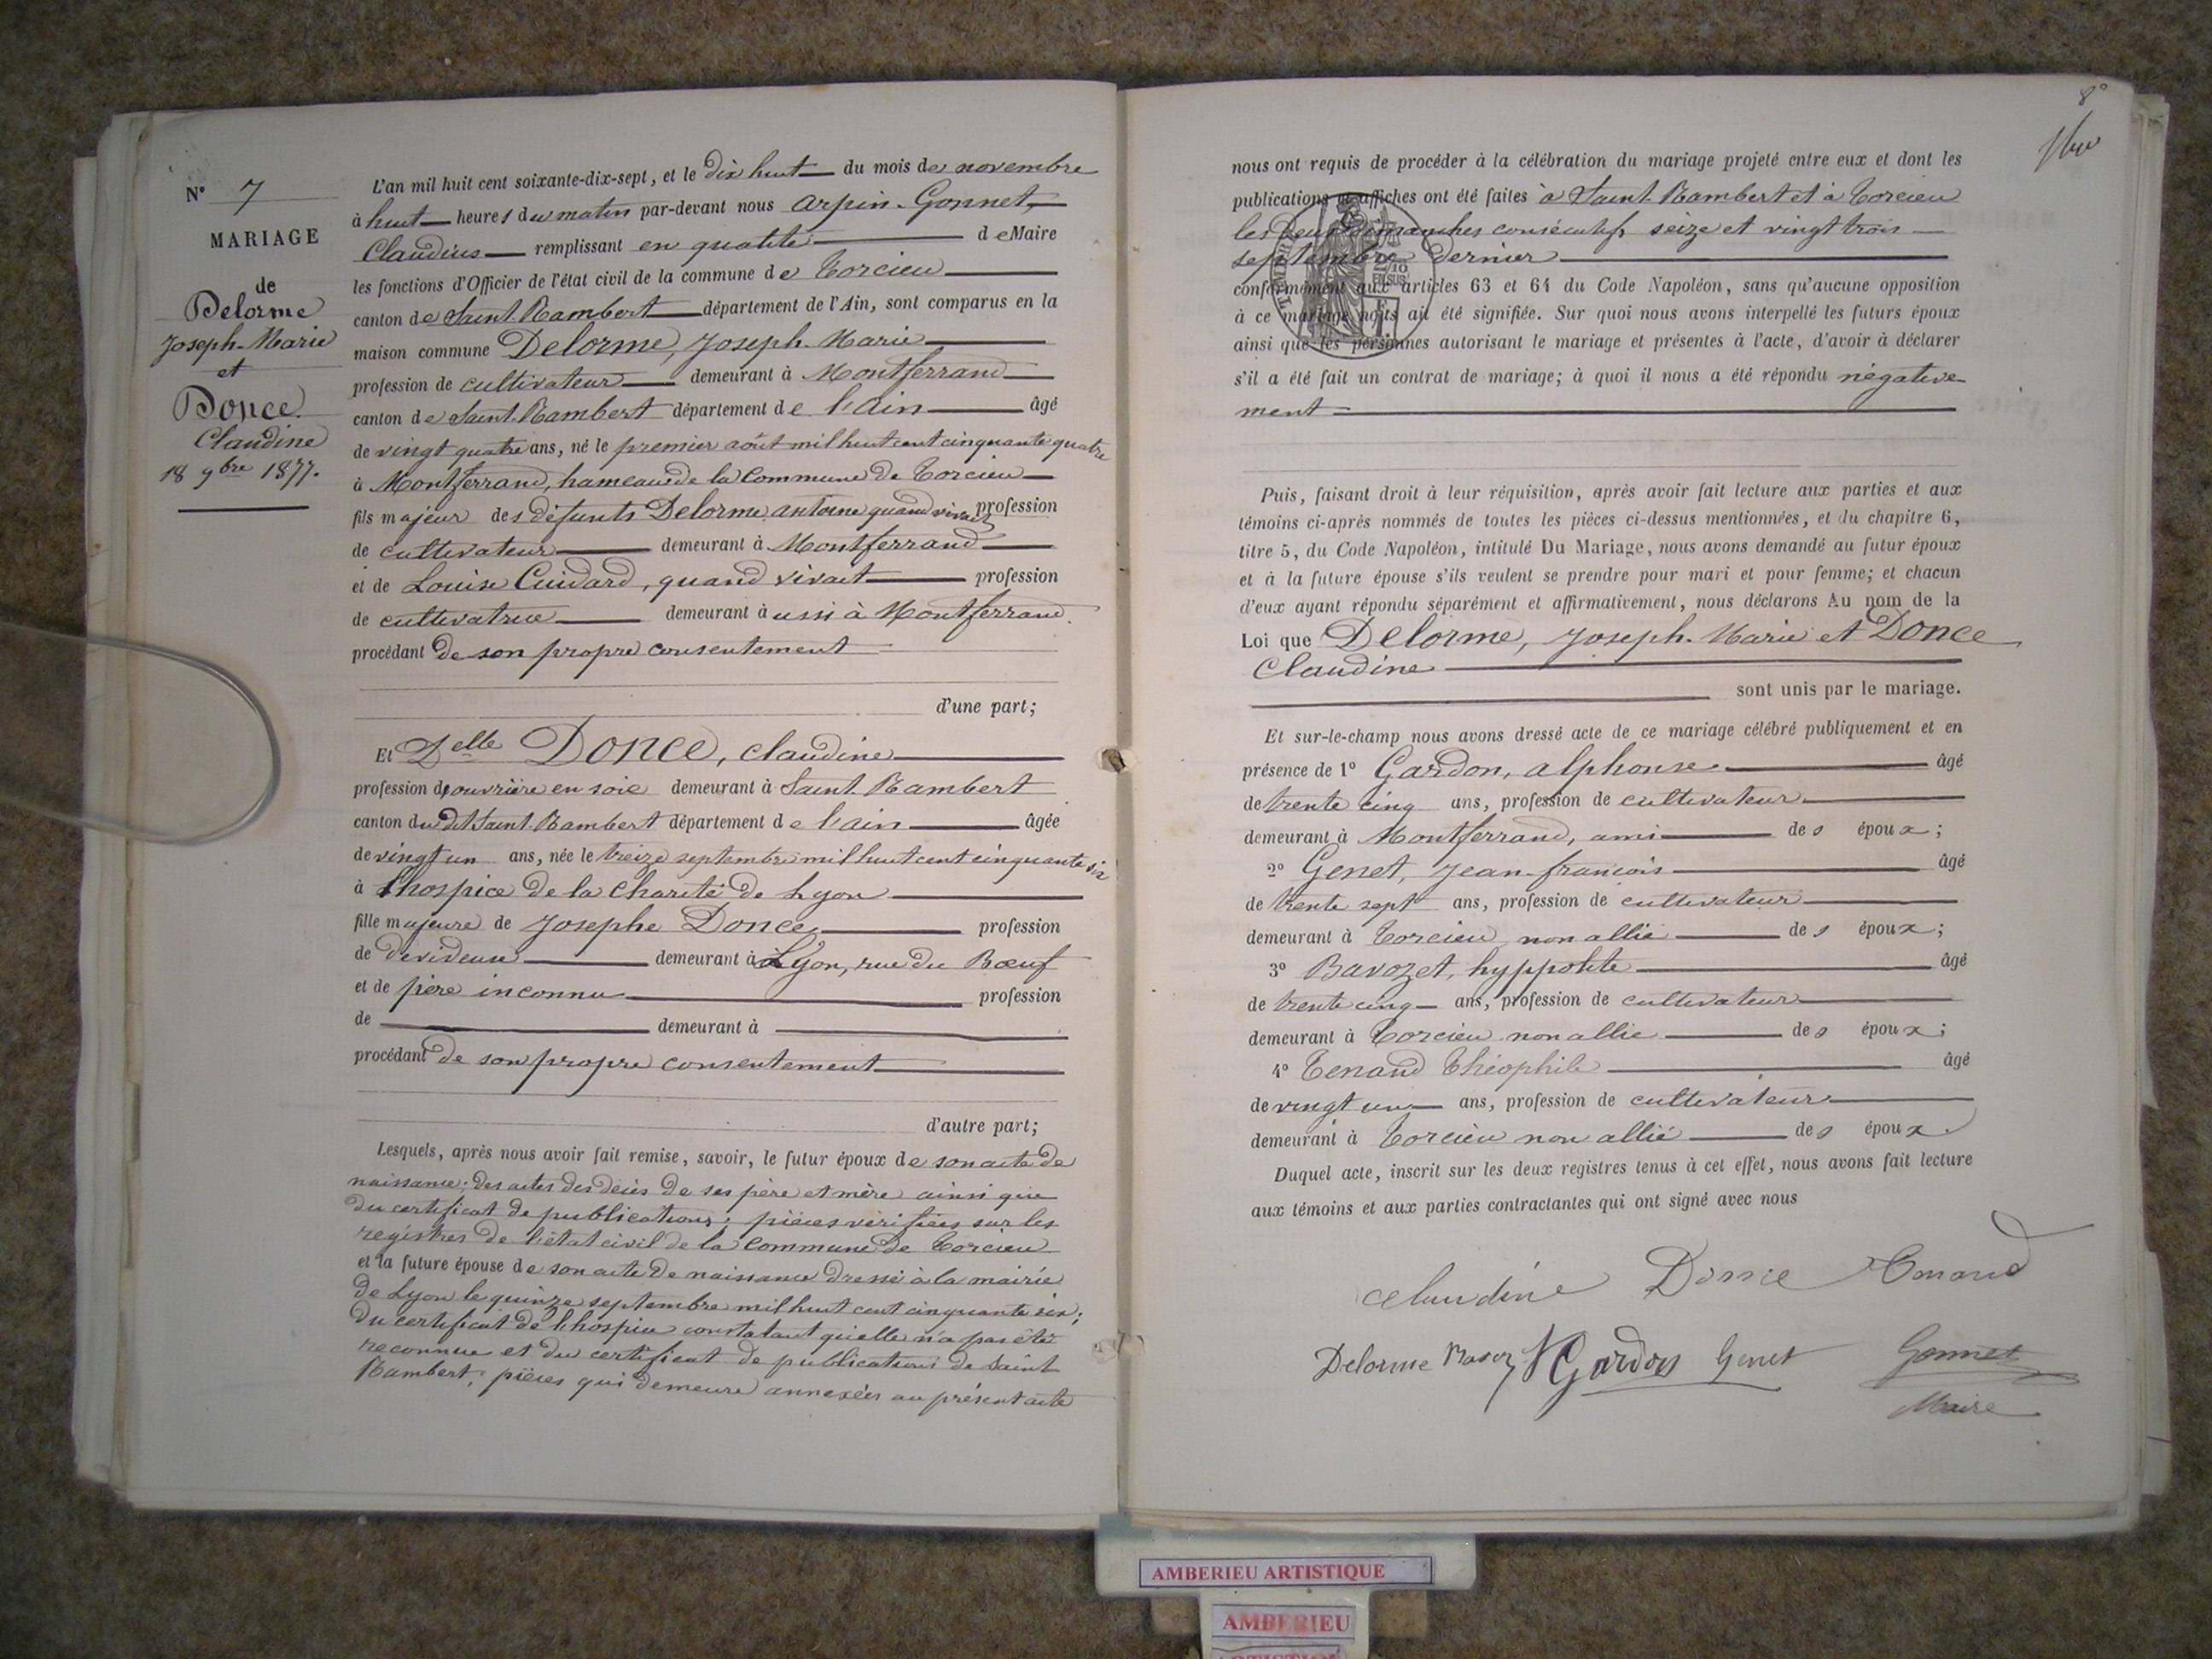 N° 7
MARIAGE
de
Delorme
Joseph-Marie
et
Donce
Claudine
18 9bre 1877.
L'an mil huit cent soixante-dix-sept, et le dix huit du mois de novembre
à huit heures du matin par-devant nous Arpin-Gonnet,
Claudius remplissant en qualité de Maire
les fonctions d'Officier de l'état civil de la commune de Torcieu
canton de Saint-Rambert département de l'Ain, sont comparus en la
maison commune Delorme, Joseph-Marie
profession de cultivateur demeurant à Montferrand
canton de Saint-Rambert département de l'Ain âgé
de vingt quatre ans, né le premier août mil huit cent cinquante quatre
à Montferrand, hameau de la Commune de Torcieu
fils majeur des défunts Delorme antoine quand vivait profession
de cultivateur demeurant à Montferrand
et de Louise Cuidard, quand vivait profession
de cultivatrice demeurant aussi à Montferrand.
procédant de son propre consentement
d'une part;
Et Delle Donce, Claudine
profession d'ouvrière en soie demeurant à Saint-Rambert
canton du dit Saint-Rambert département de l'ain âgée
de vingt un ans, née le treize septembre mil huit cent cinquante six
à l'hospice de la Charité de Lyon
fille majeure de Josephe Donce profession
de devideuse demeurant à Lyon, rue du Bœuf
et de père inconnu profession
de demeurant à
procédant de son propre consentement
d'autre part;
Lesquels, après nous avoir fait remise, savoir, le futur époux de son acte de
naissance; des actes des décès de ses père et mère ainsi que
du certificat de publications; pièces vérifiées sur les
registres de l'état civil de la Commune de Torcieu
et la future épouse de son acte de naissance dressé à la mairie
de Lyon le quinze septembre mil huit cent cinquante six;
du certificat de l'hospice constatant qu'elle n'a pas été
reconnue et du certificat de publications de Saint
Rambert; pièces qui demeure annexées au présent acte
8°
nous ont requis de procéder à la célébration du mariage projeté entre eux et dont les
publications et affiches ont été faites à Saint-Rambert et à Torcieu
les deux dimanches consécutifs seize et vingt trois
septembre dernier
conformément aux articles 63 et 64 du Code Napoléon, sans qu'aucune opposition
à ce mariage nous ait été signifiée. Sur quoi nous avons interpellé les futurs époux
ainsi que les personnes autorisant le mariage et présentes à l'acte, d'avoir à déclarer
s'il a été fait un contrat de mariage; à quoi il nous a été répondu négative-
ment
TIMBRE
2/10
EN SUS
Puis, faisant droit à leur réquisition, après avoir fait lecture aux parties et aux
témoins ci-après nommés de toutes les pièces ci-dessus mentionnées, et du chapitre 6,
titre 5, du Code Napoléon, intitulé Du Mariage, nous avons demandé au futur époux
et à la future épouse s'ils veulent se prendre pour mari et pour femme; et chacun
d'eux ayant répondu séparément et affirmativement, nous déclarons Au nom de la
Loi que Delorme, Joseph-Marie et Donce
Claudine
sont unis par le mariage.
Et sur-le-champ nous avons dressé acte de ce mariage célébré publiquement et en
présence de 1° Gardon, alphonse âgé
de trente cinq ans, profession de cultivateur
demeurant à Montferrand, ami des époux;
2° Genet, Jean-françois âgé
de trente sept ans, profession de cultivateur
demeurant à Torcieu non allié des époux;
3° Bavozet, hyppolite âgé
de trente cinq ans, profession de cultivateur
demeurant à Torcieu non allié des époux;
4° Tenand Théophile âgé
de vingt un ans, profession de cultivateur
demeurant à Torcieu non allié des époux.
Duquel acte, inscrit sur les deux registres tenus à cet effet, nous avons fait lecture
aux témoins et aux parties contractantes qui ont signé avec nous
Claudine Donce Tenand
Delorme Gardon Genet Gonnet
Maire
AMBERIEU ARTISTIQUE
AMBERIEU
ARTISTIQUE